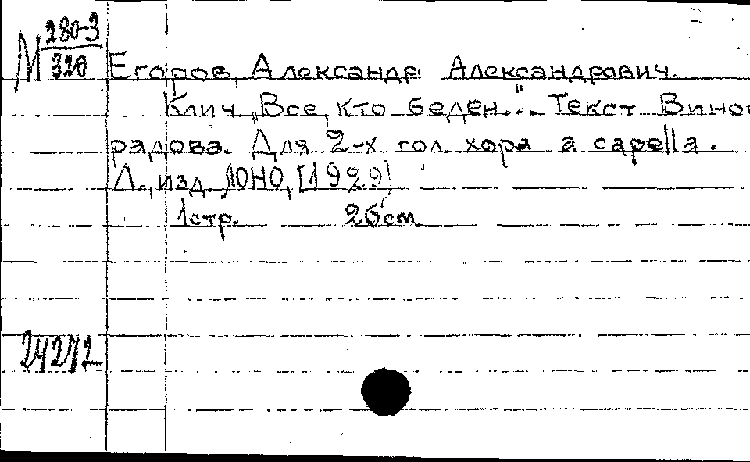 М 280-3
320
Егоров, Александр Александрович.
Клич „Все, кто беден..." Текст Виног
радова. Для 2-х гол. хора a capella.
Л., изд. ЛОНО, [1929]
1стр. 26см.
24272